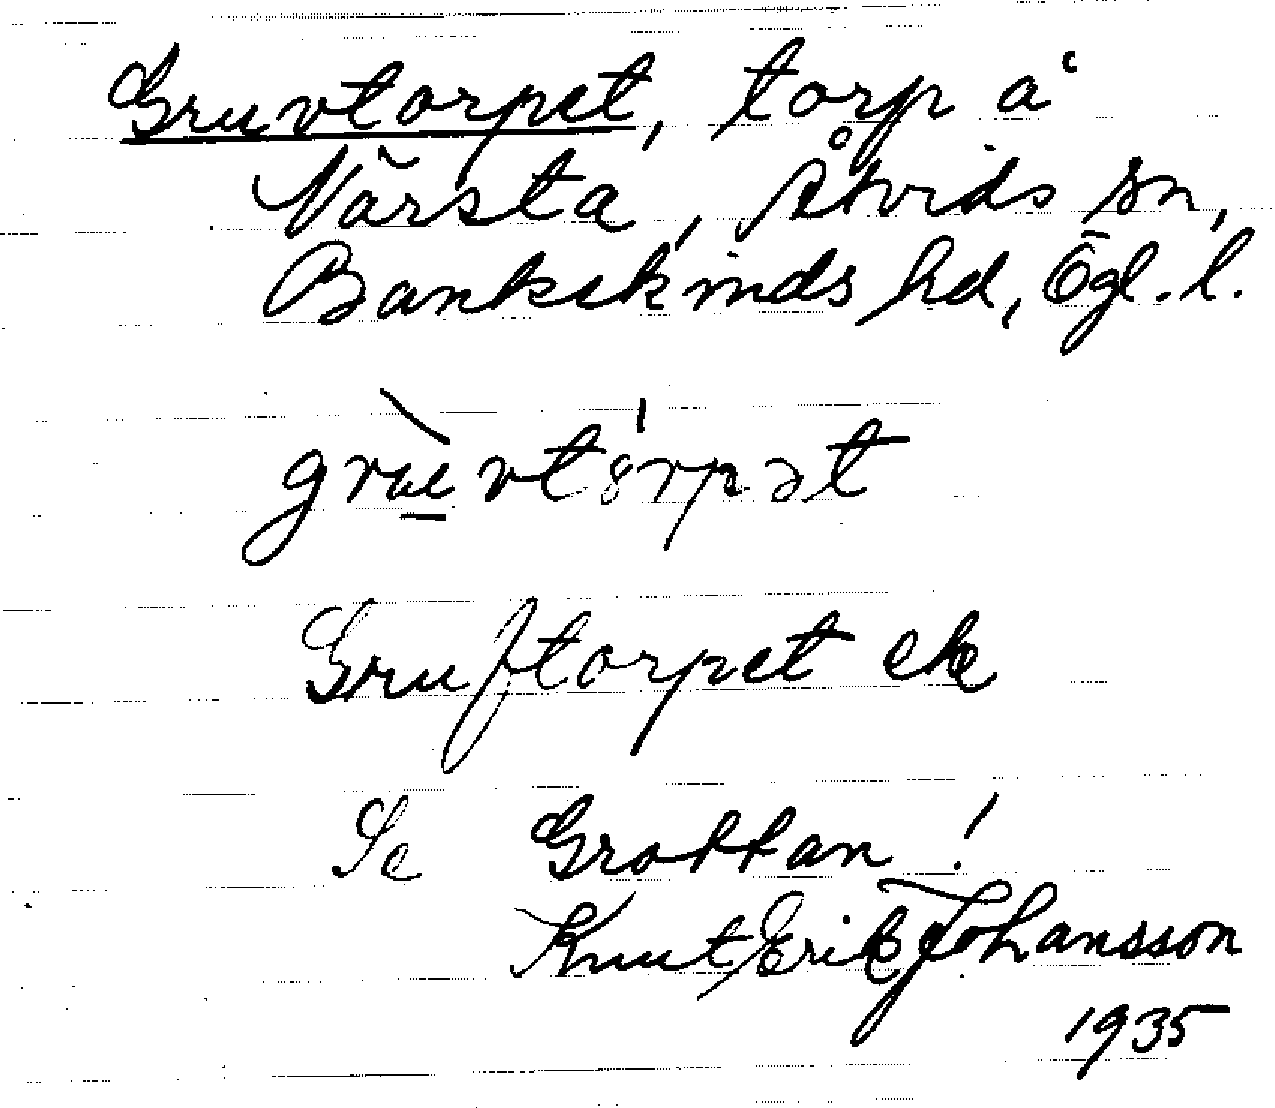 Gruvtorpet, torp å
Värsta, Åtvids sn,
Bankekinds hd, Ögl. l.
Gruftorpet ek
Se Grottan!
Knut Erik Johansson
1935